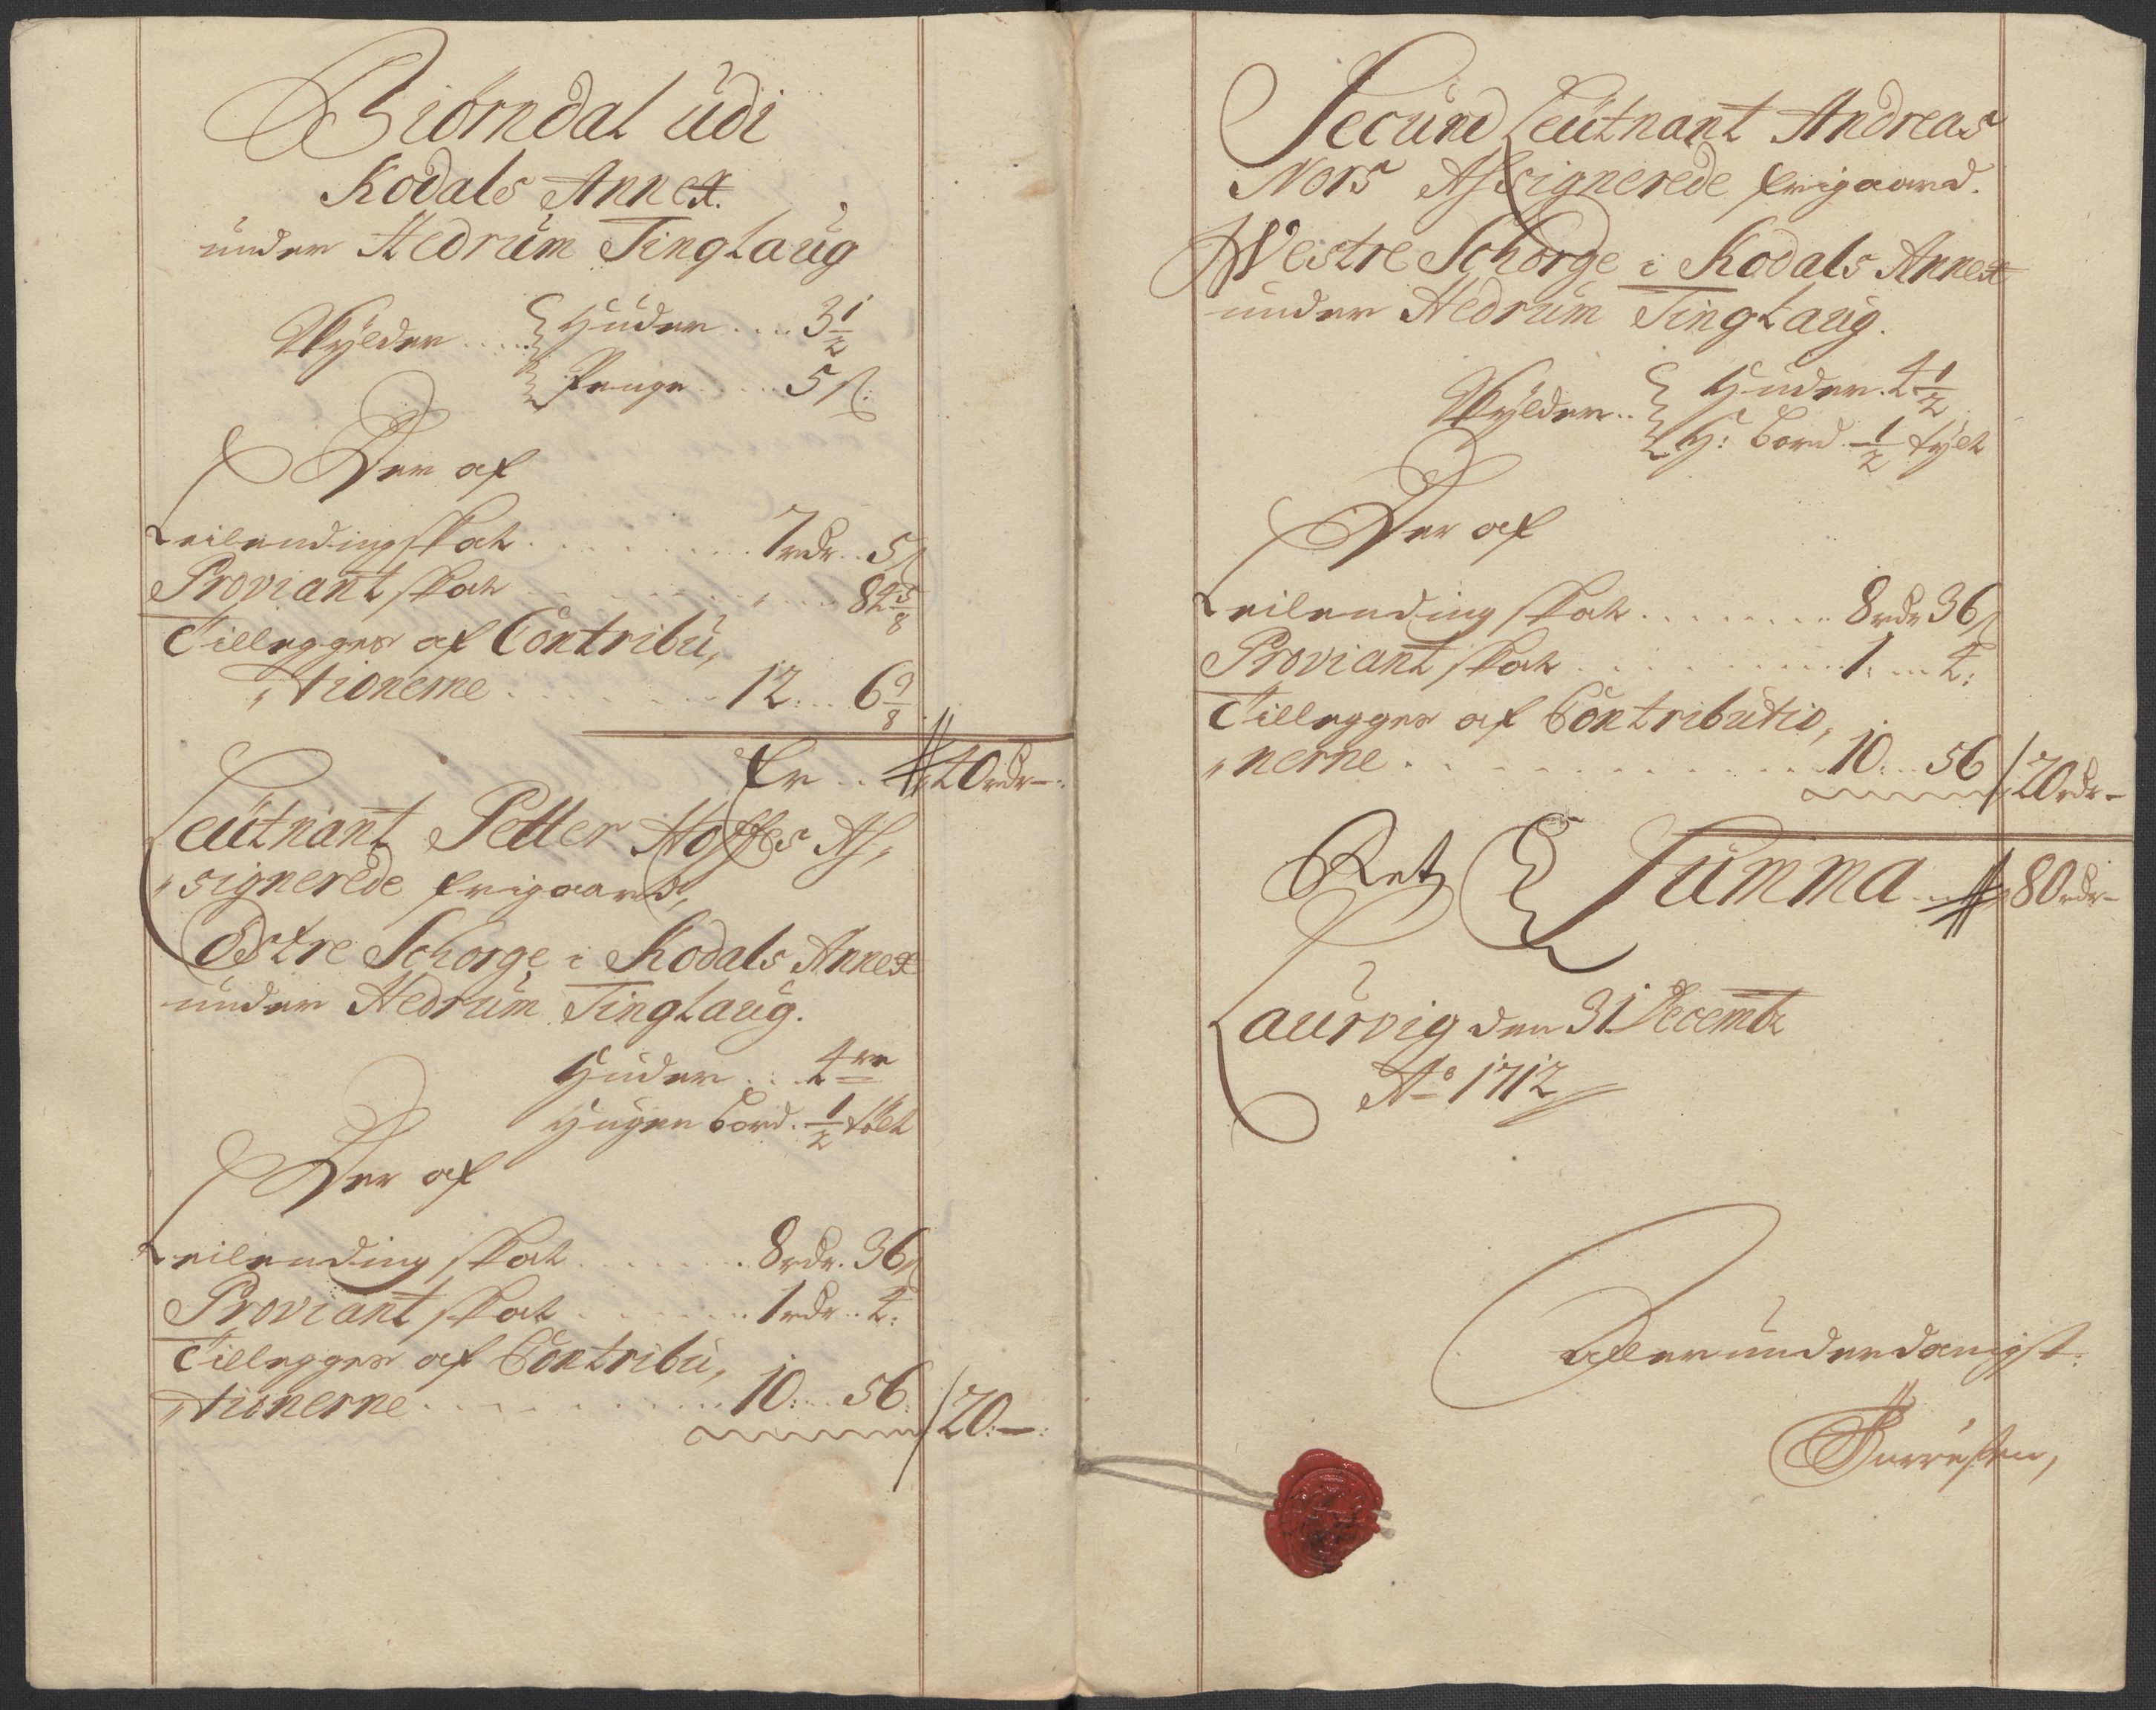 Biörndal udi
Kodals Annex.
under Hedrum Tinglaug
Skylder ..... Huder .... 3½
Penge .... 5 s:
Der af
Leilending skat ......... 7 rdr. 5 s
Proviant skat ......... 84 5/8
Tillegges af Contribu,
"tionerne ......... 12: ... 6 3/8
Er .. 40 rdr -:
Leutnant Petter Hoffes As,
"signerede frigaard,
Östre Schorge i Kodals Annex
under Hedrum Tinglaug.
Huder ... 4re
Hugen bord. ½ tolt
Der af
Leilending skat ....... 8 rdr. 36 s
Proviant skat ....... 1 rdr .. 4:
Tillegges af Contribu,
"tionerne ......... 10: .. 56: / 20: -:
Secund Leutnant Andreas
Nors Assignerede frigaard.
Westre Schorge i Kodals Annex
under Hedrum Tinglaug.
Skylder .. Huder. 4½
H: bord. ½ tylt
Der af
Leilending skat ........ 8 rdr 36 s
Proviant skat ......... 1: ... 4:
Tillegges af Contributio,
"nerne ......... 10: .. 56 / 20 rdr -
Ret Summa ... 80 rdr -
Laurvig den 31 Decembr
Ao 1712
Allerunderdanigst.